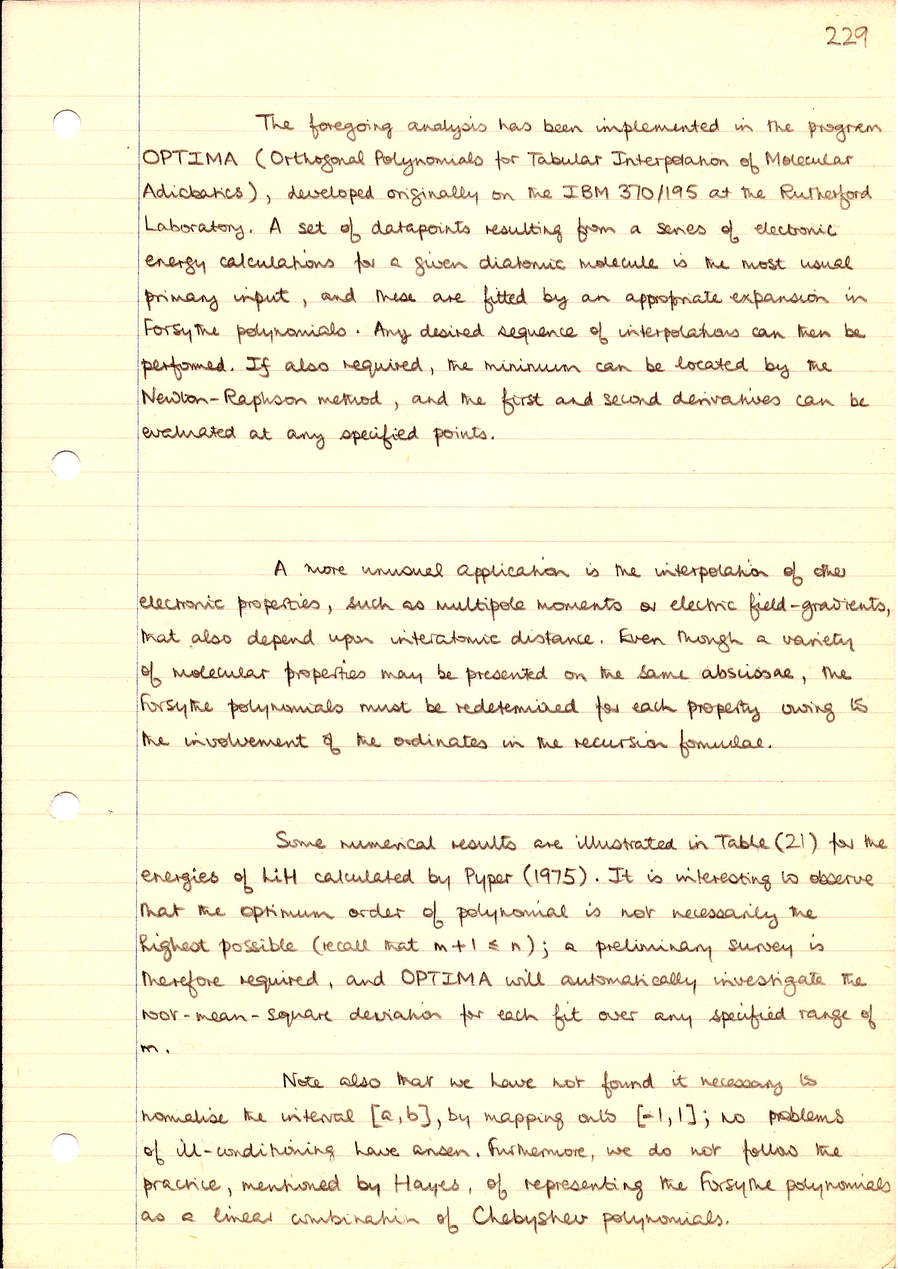 229
The foregoing analysis has been implemented in the program
OPTIMA (Orthogonal Polynomials for Tabular Interpolation of Molecular
Adiabatics), developed originally on the IBM 370/195 at the Rutherford
Laboratory. A set of datapoints resulting from a series of electronic
energy calculations for a given diatomic molecule is the most usual
primary input, and these are fitted by an appropriate expansion in
Forsythe polynomials. Any desired sequence of interpolations can then be
performed. If also required, the minimum can be located by the
Newton-Raphson method, and the first and second derivatives can be
evaluated at any specified points.
A more unusual application is the interpolation of other
electronic properties, such as multipole moments or electric field-gradients,
that also depend upon interatomic distance. Even though a variety
of molecular properties may be presented on the same abscissae, the
Forsythe polynomials must be redetermined for each property owing to
the involvement of the ordinates in the recursion formulae.
Some numerical results are illustrated in Table (21) for the
energies of LiH calculated by Pyper (1975). It is interesting to observe
that the optimum order of polynomial is not necessarily the
highest possible (recall that m+1 ≤ n); a preliminary survey is
therefore required, and OPTIMA will automatically investigate the
root-mean-square deviation for each fit over any specified range of
m.
Note also that we have not found it necessary to
normalise the interval [a,b], by mapping onto [-1,1]; no problems
of ill-conditioning have arisen. Furthermore, we do not follow the
practice, mentioned by Hayes, of representing the Forsythe polynomials
as a linear combination of Chebyshev polynomials.